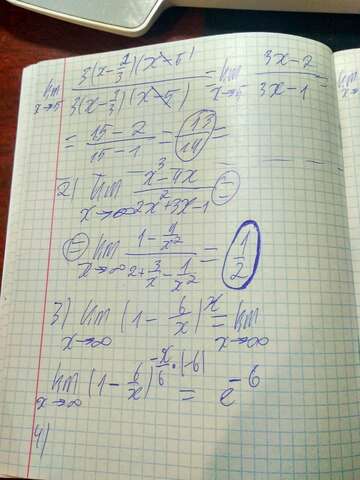 lim x→5 3(x-2/3)(x-5) / 3(x-1/3)(x-5) = lim x→5 3x-2 / 3x-1 =
= 15-2 / 15-1 = 13/14 =
2) lim x→∞ x³-4x / 2x²+3x-1 =
= lim x→∞ 1-4/x² / 2+3/x-1/x² = 1/2
3) lim x→∞ (1-6/x)^x = lim x→∞
lim x→∞ (1-6/x)^(-x/6·(-6)) = e^-6
4)